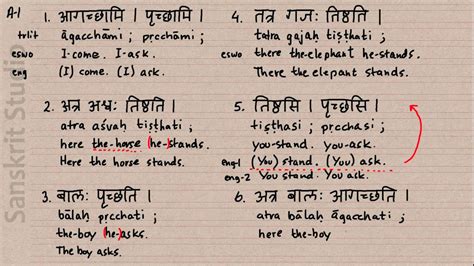 A-1
1. आगच्छामि । पृच्छामि ।
trlit āgacchāmi ; pṛcchāmi ;
eswo I-come. I-ask.
eng (I) come. (I) ask.
2. अत्र अश्वः तिष्ठति ।
atra aśvaḥ tiṣṭhati ;
here the-horse (he-)stands.
Here the horse stands.
3. बालः पृच्छति ।
bālaḥ pṛcchati ;
the-boy (he-)asks.
The boy asks.
4. तत्र गजः तिष्ठति ।
tatra gajaḥ tiṣṭhati ;
eswo there the-elephant he-stands.
There the elepant stands.
5. तिष्ठसि । पृच्छसि ।
tiṣṭhasi ; pṛcchasi ;
you-stand. you-ask.
eng-1 (You) stand. (You) ask.
eng-2 You stand. You ask.
6. अत्र बालः आगच्छति ।
atra bālaḥ āgacchati ;
here the-boy
Sanskrit Studio